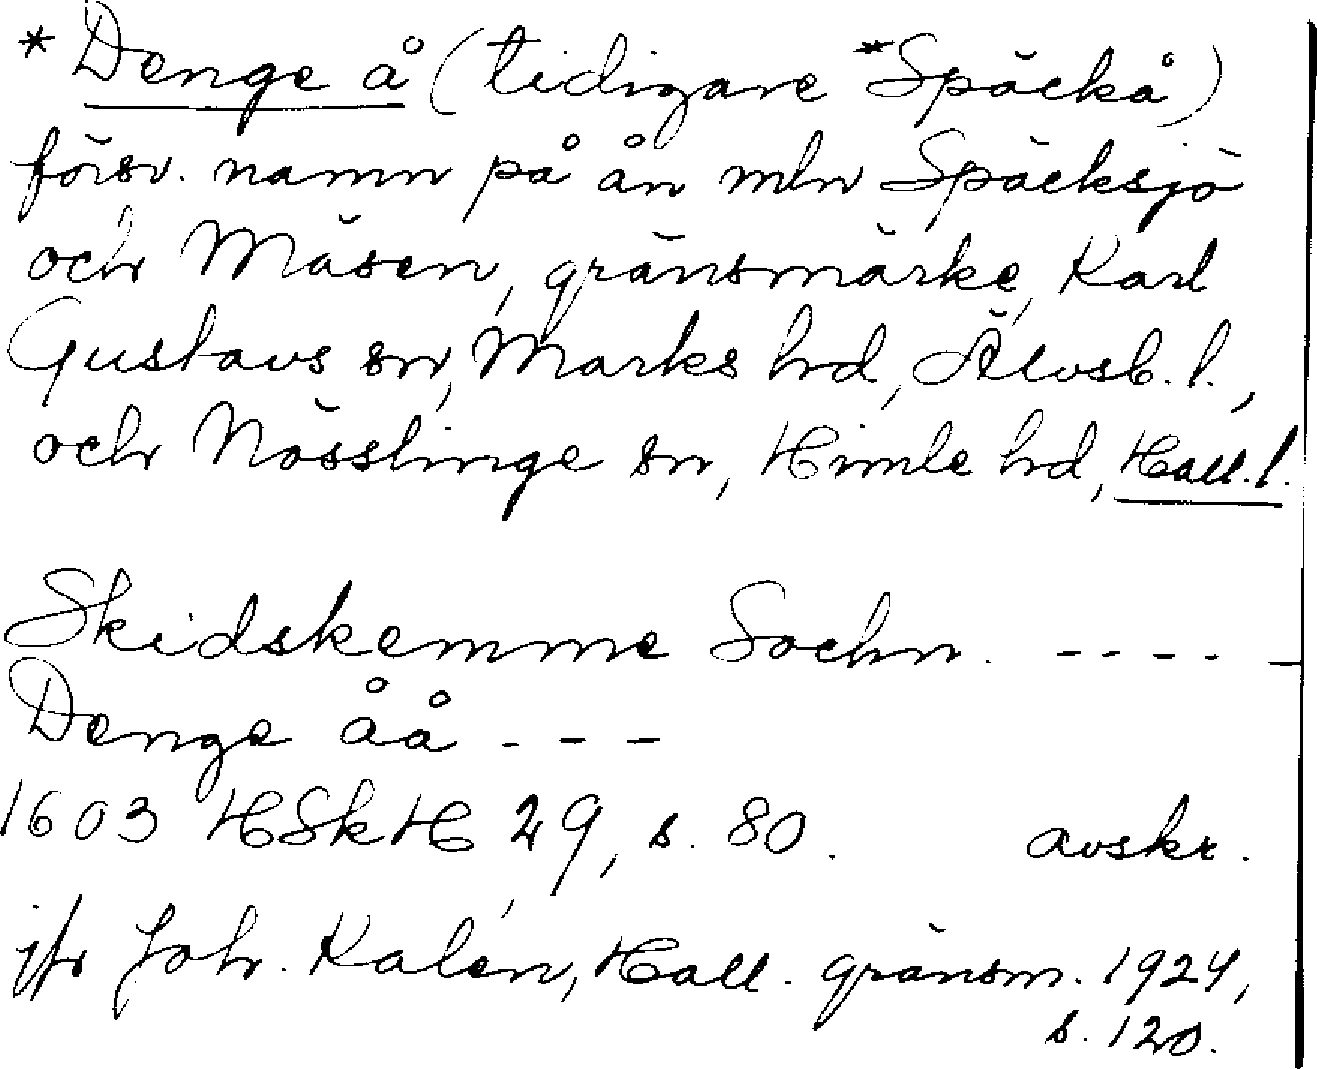 *Denge å (tidigare *Späckå)
försv. namn på ån mln Späcksjö
och Mäsen, gränsmärke, Karl
Gustavs sn, Marks hd, Älvsb. l.,
och Nösslinge sn, Himle hd, Hall. l.
Skidskemme Sochn. - - - - -
Denge åå - - -
1603 HSkH 29, s. 80. avskr.
jfr Joh. Kalén, Hall. gränsm. 1924,
s. 120.